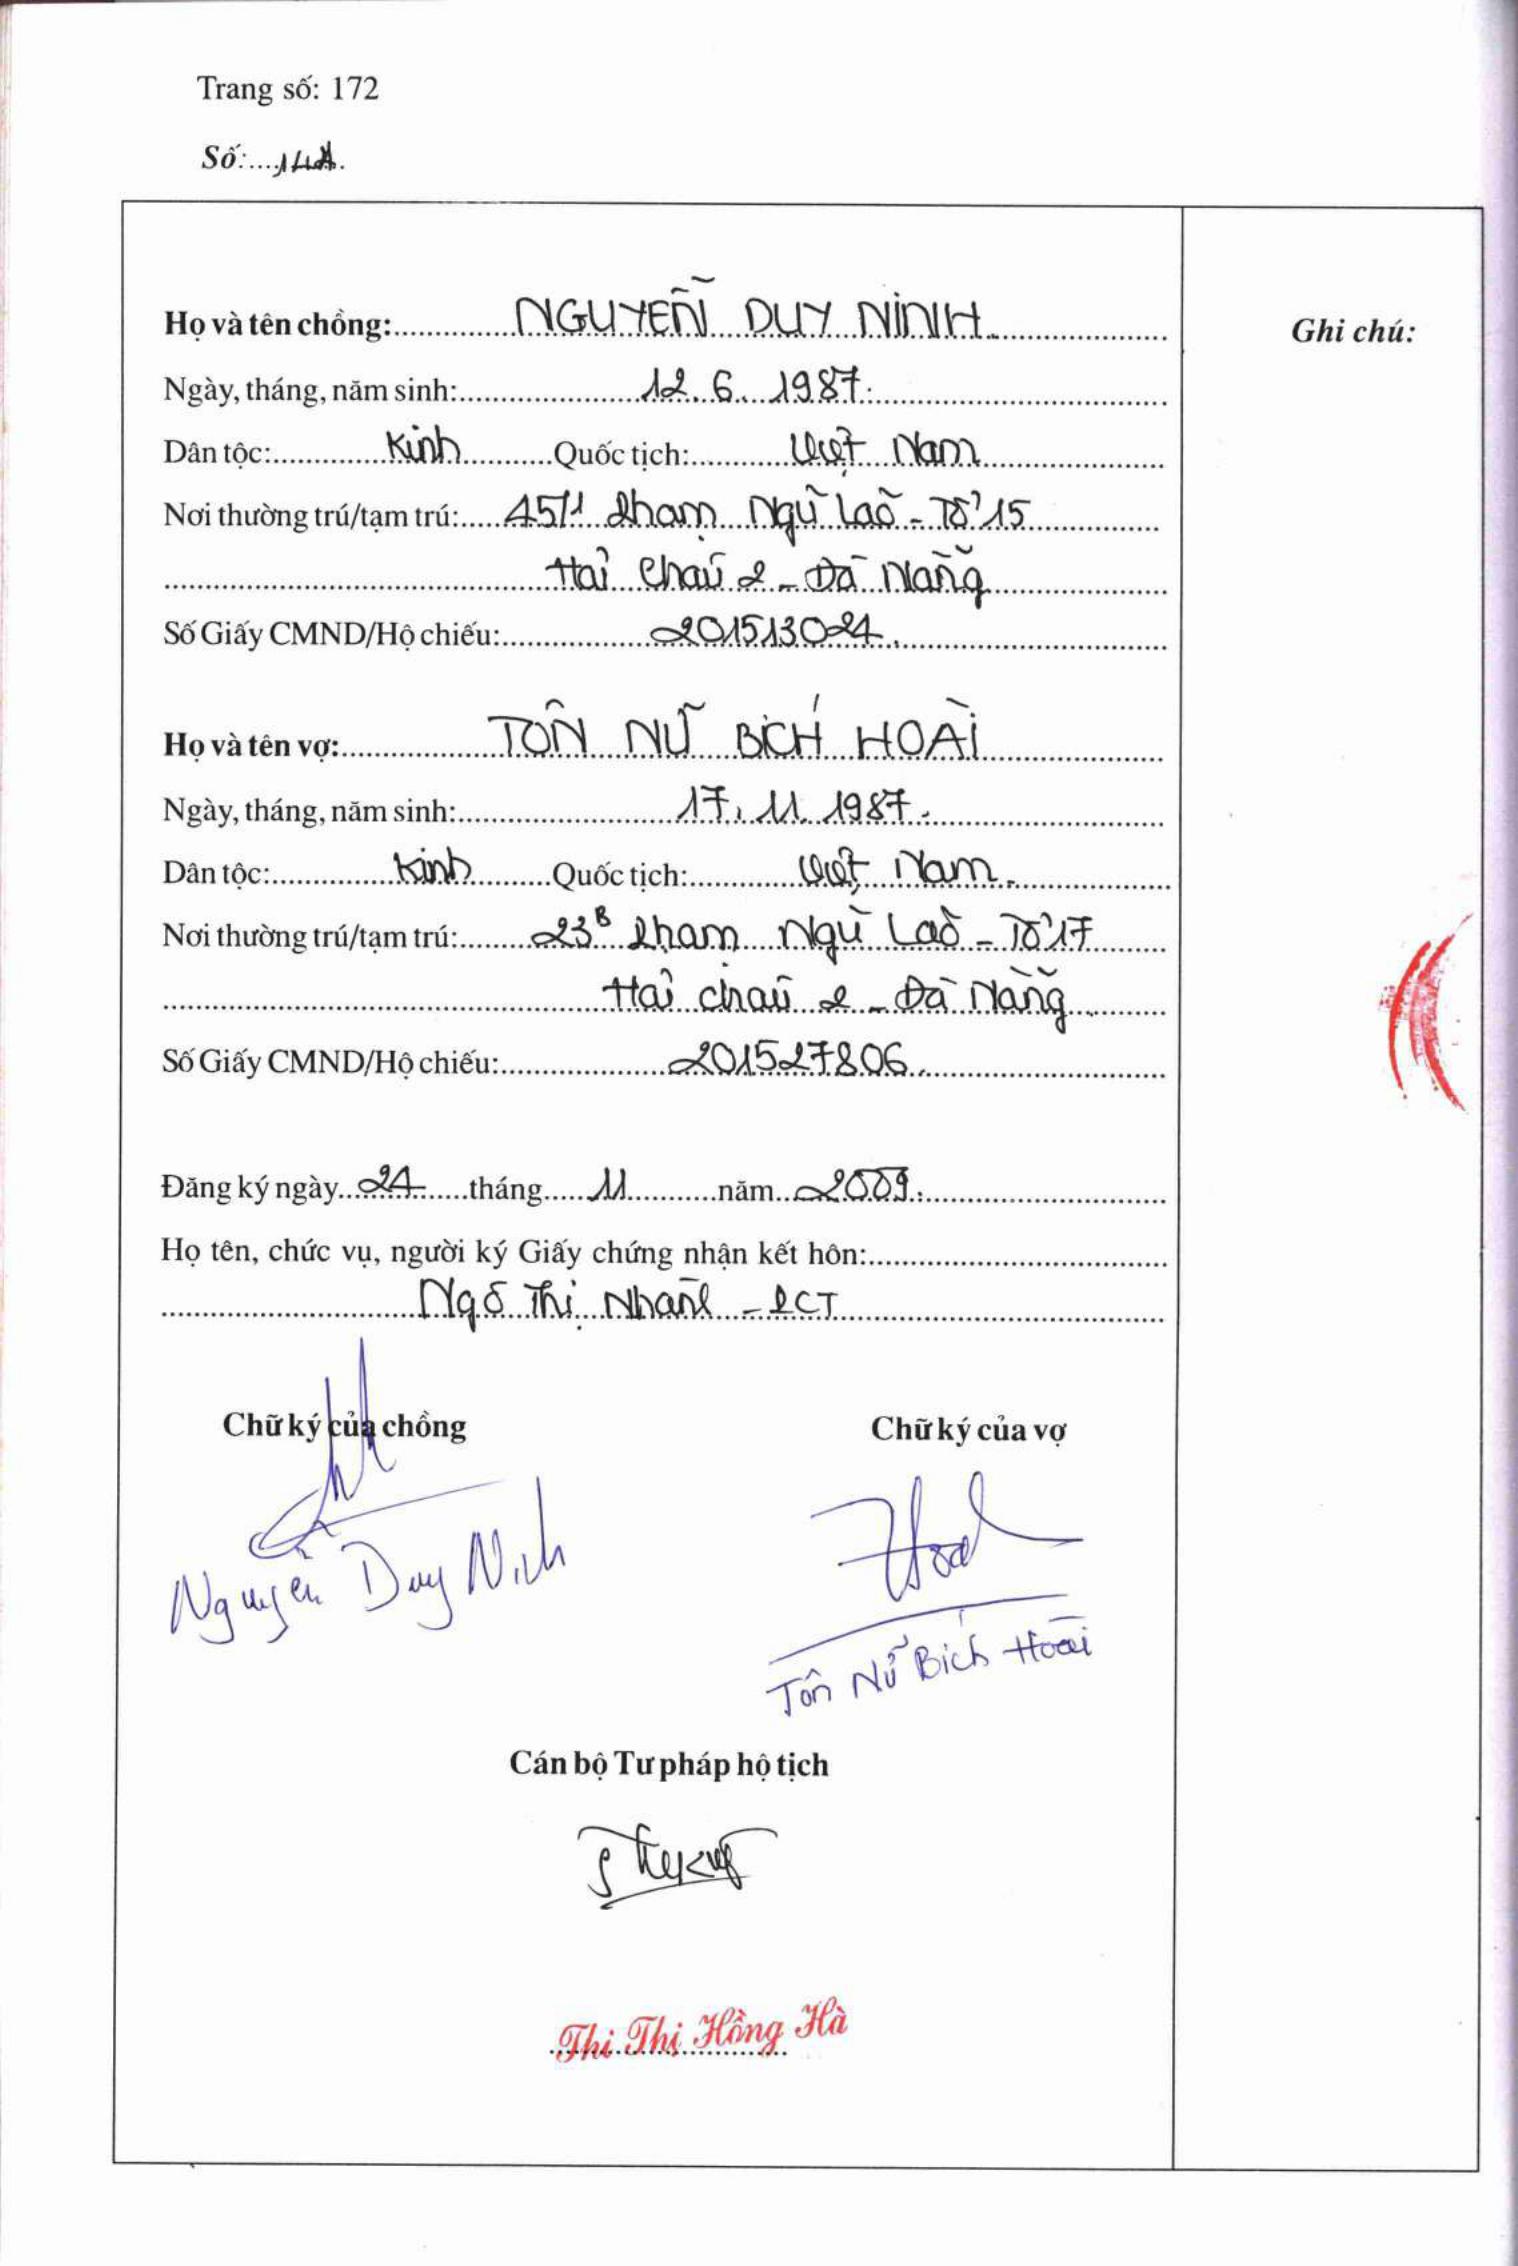 Trang số: 172
Số:
Họ và tên chồng: NGUYỄN DUY NINH
Ghi chú:
Ngày, tháng, năm sinh: 12.6.1987.
Dân tộc: Kinh Quốc tịch: Việt Nam
Nơi thường trú/tạm trú: 45/1 Phạm Ngũ Lão - Tổ 15
Hải Châu 2 - Đà Nẵng
Số Giấy CMND/Hộ chiếu: 201513024.
Họ và tên vợ: TÔN NỮ BÍCH HOÀI
Ngày, tháng, năm sinh: 17.11.1987.
Dân tộc: Kinh Quốc tịch: Việt Nam.
Nơi thường trú/tạm trú: 23B Phạm Ngũ Lão - Tổ 17
Hải Châu 2 - Đà Nẵng
Số Giấy CMND/Hộ chiếu: 201527806.
Đăng ký ngày 24 tháng 11 năm 2009.
Họ tên, chức vụ, người ký Giấy chứng nhận kết hôn:
Ngô Thị - PCT
Chữ ký của chồng Chữ ký của vợ
Nguyễn Duy Ninh
Tôn Nữ Bích Hoài
Cán bộ Tư pháp hộ tịch
Thi Thị Hồng Hà